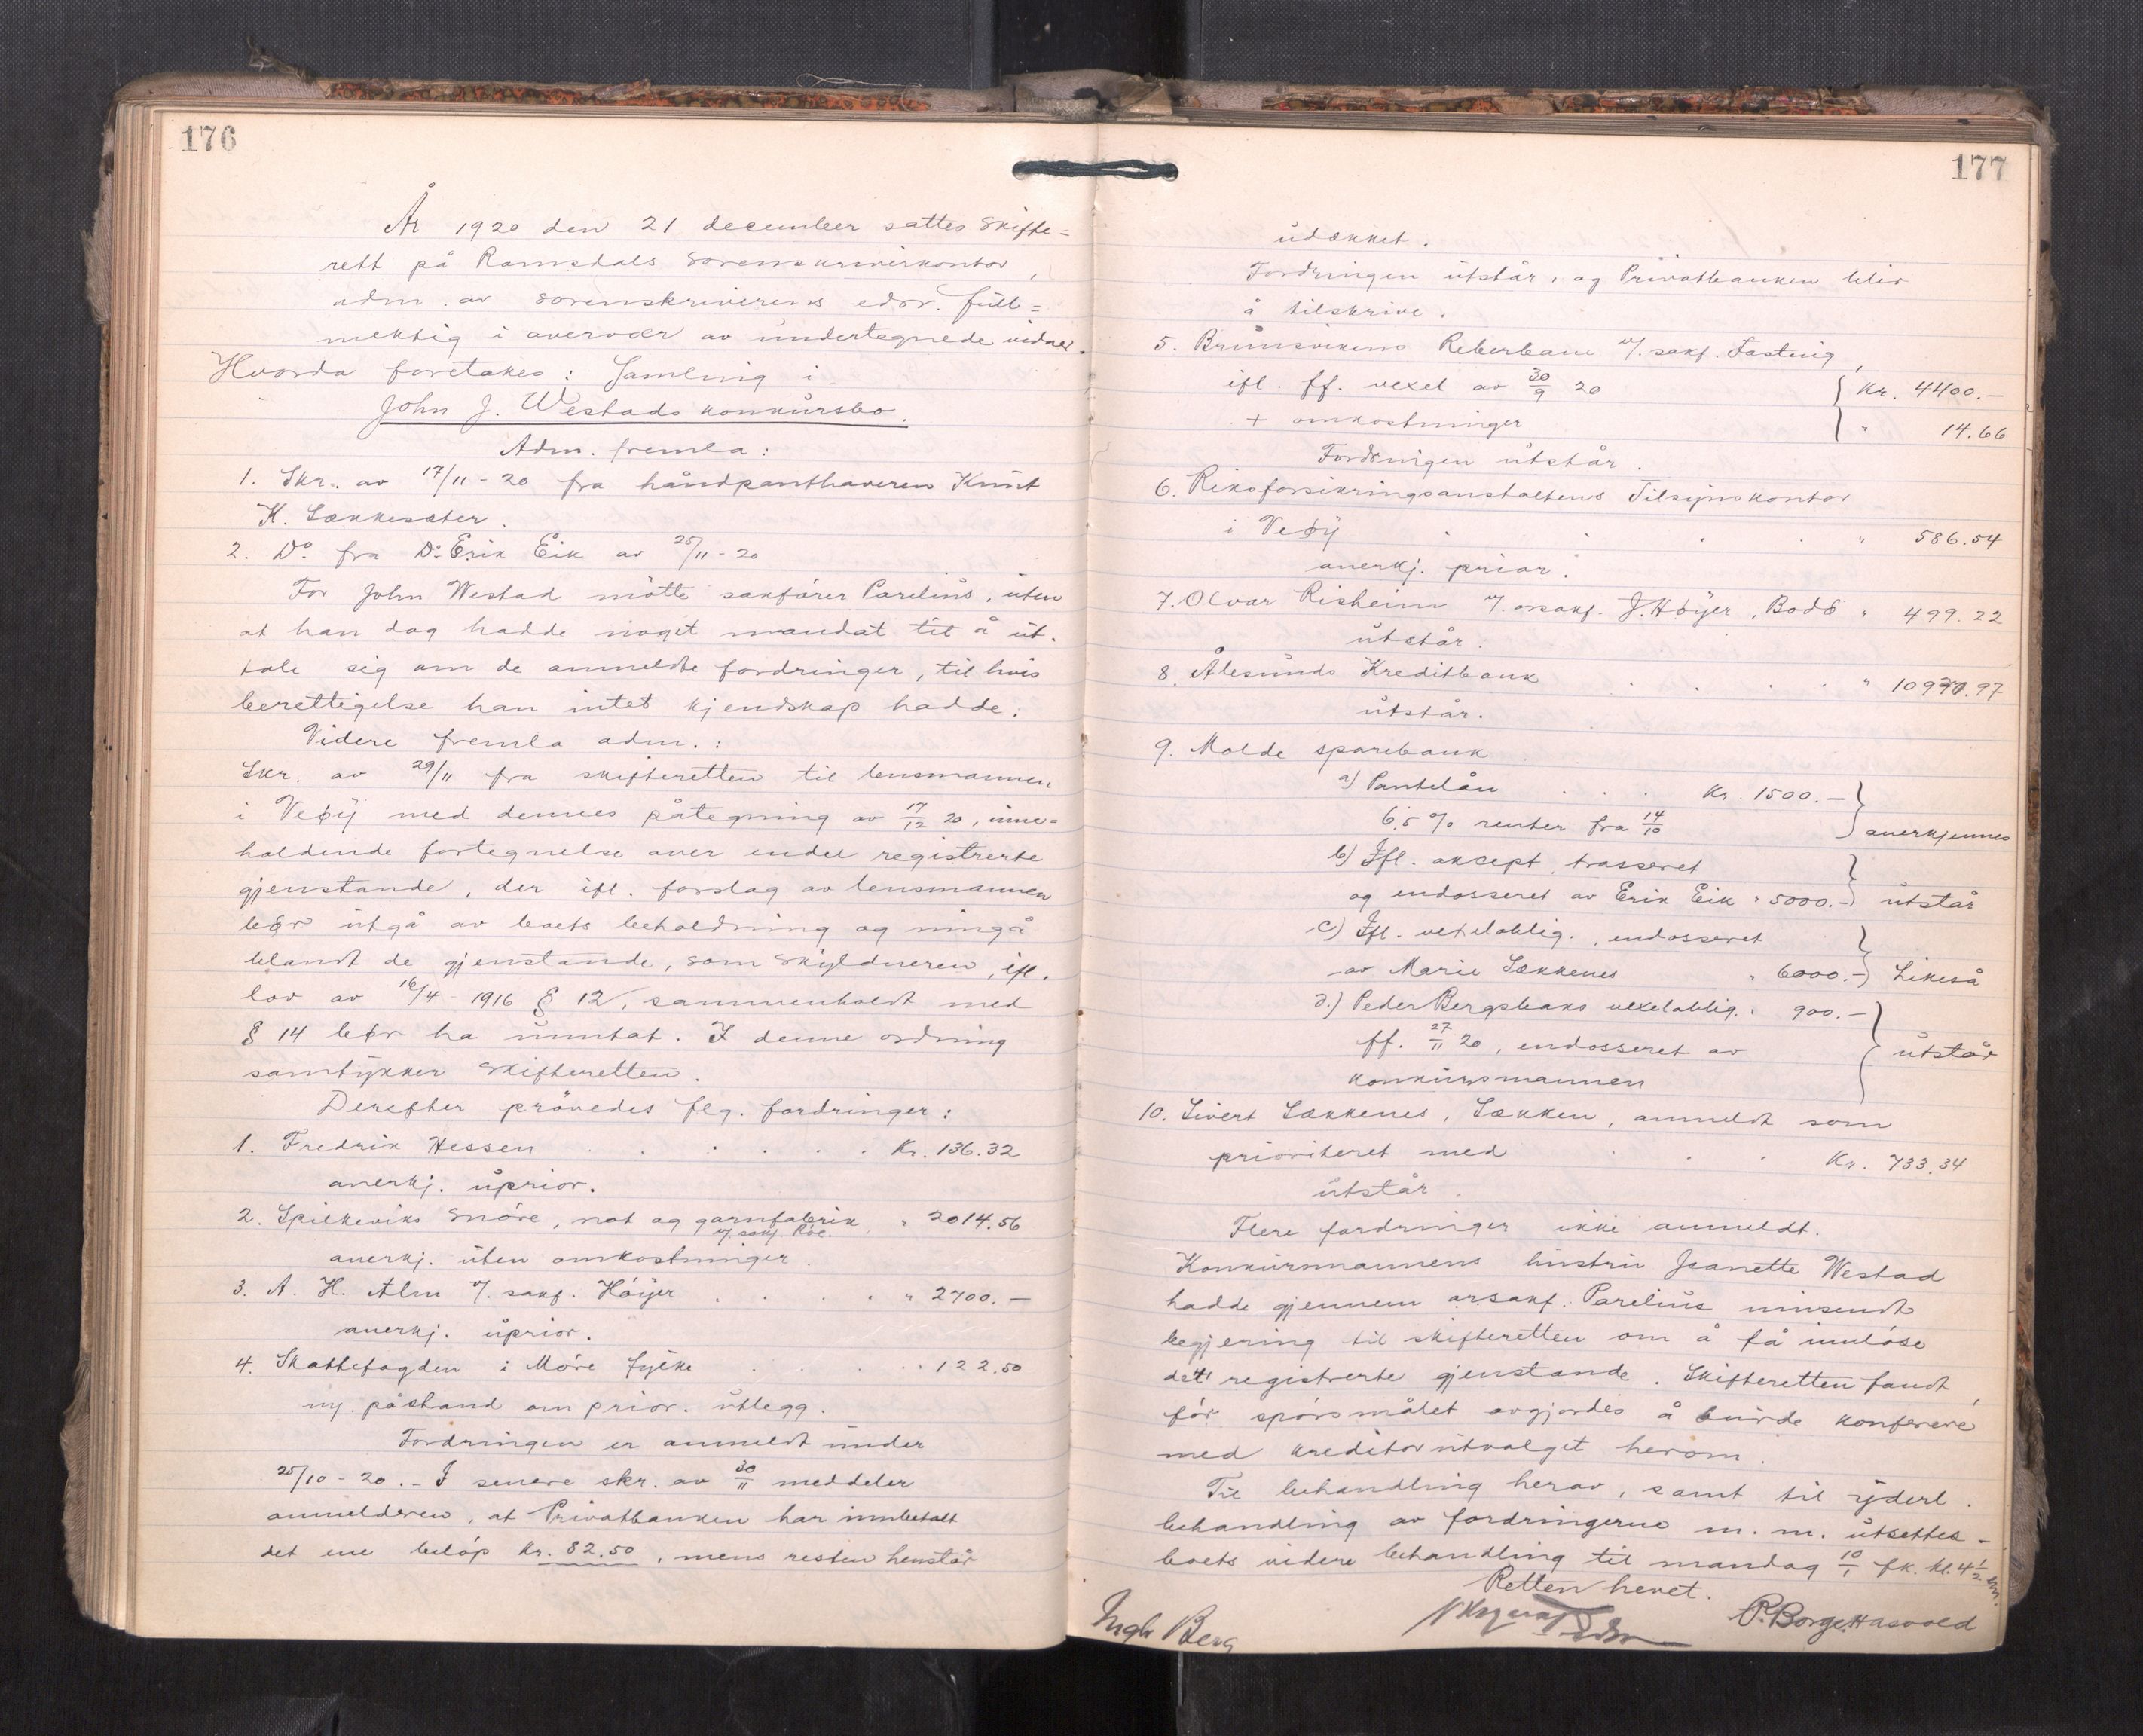 176
År 1920 den 21 december sattes skifte=
rett på Romsdals sorenskriverkontor,
adm. av sorenskriverens edsv. full=
mektig i overvær av undertegnede vidner.
Hvorda foretakes: Samling i
John J. Westads konkursbo.
Adm. fremla:
1. Skr. av 17/11-20 fra håndpanthaveren Knut
K. Sækkesæter.
2. Do. fra Do. Erik Eik av 25/11-20
For John Westad møtte sakfører Parelius, uten
at han dog hadde noget mandat til å ut-
tale sig om de anmeldte fordringer, til hvis
berettigelse han intet kjendskap hadde.
Videre fremla adm.:
Skr. av 29/11 fra skifteretten til lensmannen
i Veøy med dennes påtegning av 17/12 20, inne=
holdende fortegnelse over endel registrerte
gjenstande, der ifl. forslag av lensmannen
bør utgå av boets beholdning og inngå
blandt de gjenstande, som skyldneren, ifl.
lov av 16/4-1916 § 12, sammenholdt med
§ 14 bør ha unntat. I denne ordning
samtykker skifteretten.
Derefter prøvedes flg. fordringer:
1. Fredrik Hessen . . . . . Kr. 136.32
anerkj. uprior.
2. Spilkeviks snøre, not og garnfabrik " 2014.56
v/ sakf. Röe.
anerkj. uten omkostninger.
3. A. H. Alm v/. sakf. Høyer . . . . " 2700.—
anerkj. uprior.
4. Skattefogden i Møre fylke . . . . " 122.50
m/. påstand om prior. utlegg.
Fordringen er anmeldt under
25/10-20.- I senere skr. av 30/11 meddeler
anmelderen, at Privatbanken har innbetalt
det ene beløp Kr. 82.50, mens resten henstår
177
udækket.
Fordringen utstår, og Privatbanken blir
å tilskrive.
5. Brunsvikens Reberbane v/. sakf. Fasting,
ifl. ff. vexel av 30/9 20 { Kr. 4400.—
+ omkostninger " 14.66
Fordringen utstår.
6. Riksforsikringsanstaltens Tilsynskontor
i Veøy . . . . . " 586.54
anerkj. prior.
7. Olvar Risheim v/. orsakf. J. Høyer, Bodø " 499.22
utstår.
8. Ålesunds Kreditbank . . . . " 10970.97
utstår.
9. Molde sparebank
a) Pantelån . . . Kr. 1500.— }
6,5 % renter fra 14/10 anerkjennes
b) Ifl. akcept, trasseret }
og endosseret av Erik Eik " 5000.— utstår
c) Ifl. vexeloblig., endosseret }
av Marie Sækkenes " 6000.— Likeså
d.) Peder Bergsbaks vexeloblig. " 900.— }
ff. 27/11 20, endosseret av utstår
konkursmannen
10. Sivert Sækkenes, Sækken, anmeldt som
prioriteret med . . . Kr. 733.34
utstår.
Flere fordringer ikke anmeldt.
Konkursmannens hustru Jeanette Westad
hadde gjennem orsakf. Parelius innsendt
begjering til skifteretten om å få innløse
det registrerte gjenstande. Skifteretten fandt,
før spørsmålet avgjordes å burde konferere
med kreditorutvalget herom.
Til behandling herav, samt til yderl.
behandling av fordringerne m. m. utsettes -
boets videre behandling til mandag 10/1 fk. kl. 4 1/2 em.
Retten hevet.
Ingb. Berg
P. Borge Hasvold